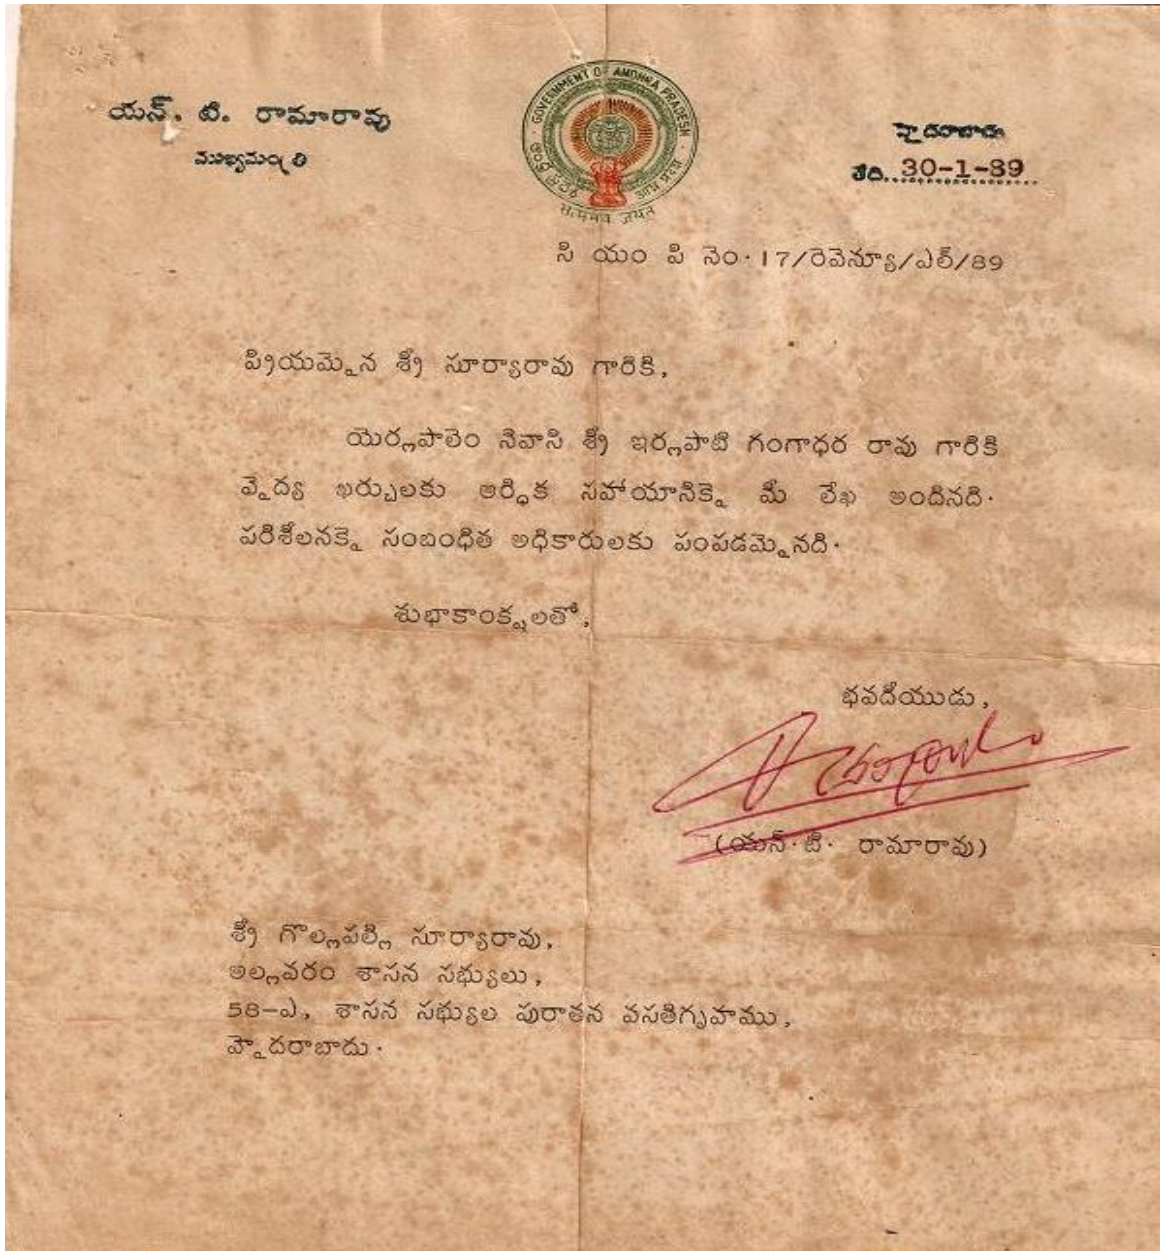 యన్. టి. రామారావు
ముఖ్యమంత్రి
GOVERNMENT OF ANDHRA PRADESH
ఆంధ్ర ప్రదేశ్
सत्यमेव जयते
హైదరాబాదు
తేది. 30-1-89
సి యం పి నెం. 17/రెవెన్యూ/ఎల్/89
ప్రియమైన శ్రీ సూర్యారావు గారికి,
యెర్లపాలెం నివాసి శ్రీ ఇర్లపాటి గంగాధర రావు గారికి
వైద్య ఖర్చులకు ఆర్థిక సహాయానికై మీ లేఖ అందినది.
పరిశీలనకై సంబంధిత అధికారులకు పంపడమైనది.
శుభాకాంక్షలతో,
భవదీయుడు,
(యన్.టి. రామారావు)
శ్రీ గొల్లపల్లి సూర్యారావు,
అల్లవరం శాసన సభ్యులు,
58-ఎ, శాసన సభ్యుల పురాతన వసతిగృహము,
హైదరాబాదు.